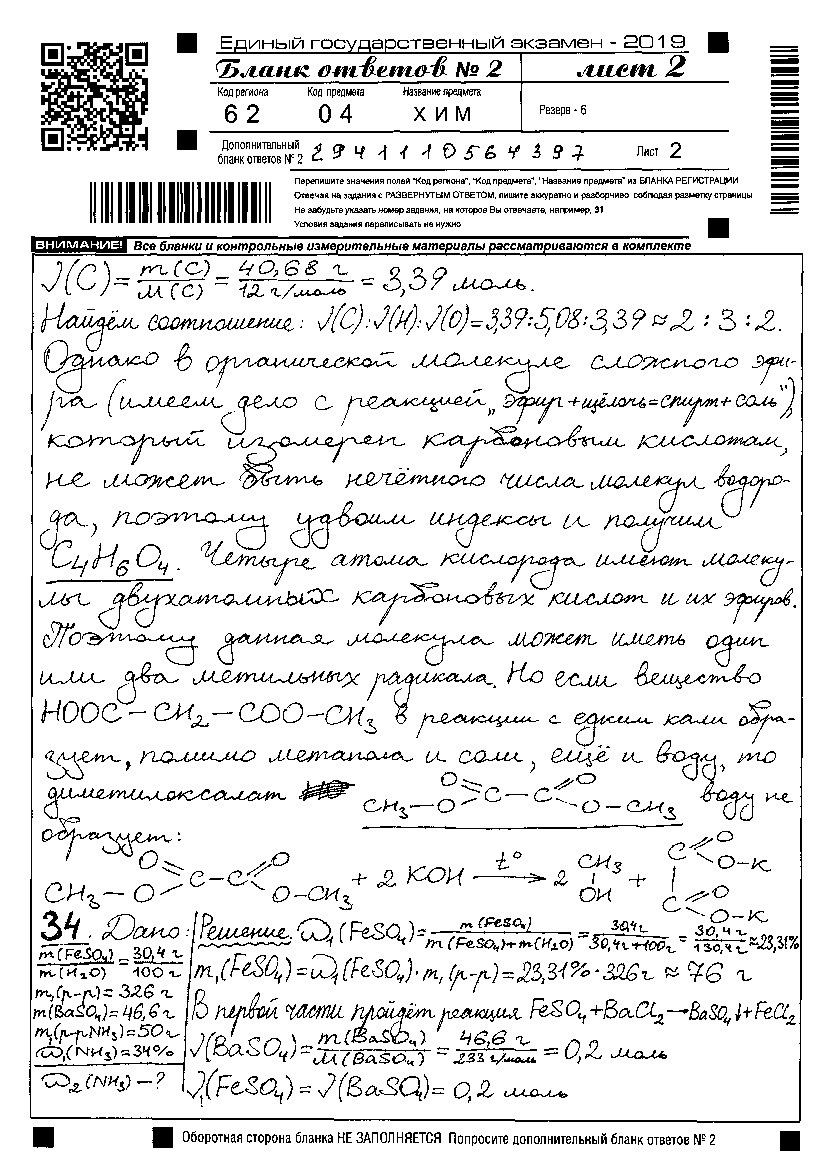 Единый государственный экзамен - 2019
Бланк ответов № 2 лист 2
Код региона Код предмета Название предмета
62 04 ХИМ Резерв - 6
Дополнительный бланк ответов № 2 2941110564397 Лист 2
Перепишите значения полей "Код региона", "Код предмета", "Название предмета" из БЛАНКА РЕГИСТРАЦИИ
Отвечая на задания с РАЗВЕРНУТЫМ ОТВЕТОМ, пишите аккуратно и разборчиво, соблюдая разметку страницы
Не забудьте указать номер задания, на которое Вы отвечаете, например, 31
Условия задания переписывать не нужно
ВНИМАНИЕ! Все бланки и контрольные измерительные материалы рассматриваются в комплекте
√(C) = m(C)/M(C) = 40,68 г/12 г/моль = 3,39 моль.
Найдём соотношение: √(C):√(H):√(O)=3,39:5,08:3,39≈2:3:2.
Однако в органической молекуле сложного эфи-
ра (имеем дело с реакцией „эфир+щёлочь=спирт+соль"),
который изомерен карбоновым кислотам,
не может быть нечётного числа молекул водоро-
да, поэтому удвоим индексы и получим
C₄H₆O₄. Четыре атома кислорода имеют молеку-
лы двухатомных карбоновых кислот и их эфиров.
Поэтому данная молекула может иметь один
или два метильных радикала. Но если вещество
HOOC–CH₂–COO–CH₃ в реакции с едким кали обра-
зует, помимо метанола и соли, ещё и воду, то
диметилоксалат CH₃–O–C(=O)–C(=O)–O–CH₃ воду не
образует:
CH₃–O–C(=O)–C(=O)–O–CH₃ + 2 KOH t°→ 2 CH₃–OH + C(=O)(O–K)–C(=O)(O–K)
34. Дано: Решение. ω₁(FeSO₄)=m(FeSO₄)/m(FeSO₄)+m(H₂O) = 30,4г/30,4г+100г = 30,4г/130,4г ≈23,31%
m(FeSO₄)/m(H₂O) = 30,4 г/100 г
m₁(FeSO₄)=ω₁(FeSO₄)·m₁(р-р)=23,31%·326г ≈ 76 г
m₁(р-р)=326 г
В первой части пройдёт реакция FeSO₄+BaCl₂→BaSO₄↓+FeCl₂
m(BaSO₄)=46,6г
m₁(р-рNH₃)=50г
√(BaSO₄)=m(BaSO₄)/M(BaSO₄)=46,6 г/233 г/моль=0,2 моль
ω₁(NH₃)=34%
ω₂(NH₃)–? √₁(FeSO₄)=√(BaSO₄)=0,2 моль
Оборотная сторона бланка НЕ ЗАПОЛНЯЕТСЯ Попросите дополнительный бланк ответов № 2